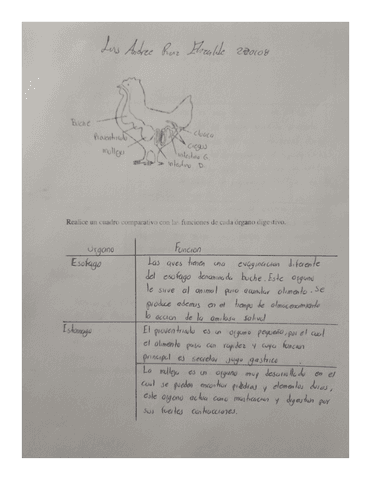 Luis Andree Ruiz Elizalde 280108
Buche
Proventriculo
molleja
cloaca
ciegos
intestino G.
intestino D.
Realice un cuadro comparativo con las funciones de cada órgano digestivo.
Organo Funcion
Esofago Las aves tienen una evaginacion diferente
del esofago denominada buche. Este organo
le sirve al animal para acumular alimento. Se
produce ademas en el tiempo de almacenamiento
la accion de la amilasa salival
Estomago El proventriculo es un organo pequeño, por el cual
el alimento pasa con rapidez y cuya funcion
principal es secretar jugo gastrico
La molleja es un organo muy desarrollado en el
cual se pueden encontrar piedras y elementos duros,
este organo actua como masticacion y digestion por
sus fuertes contracciones.